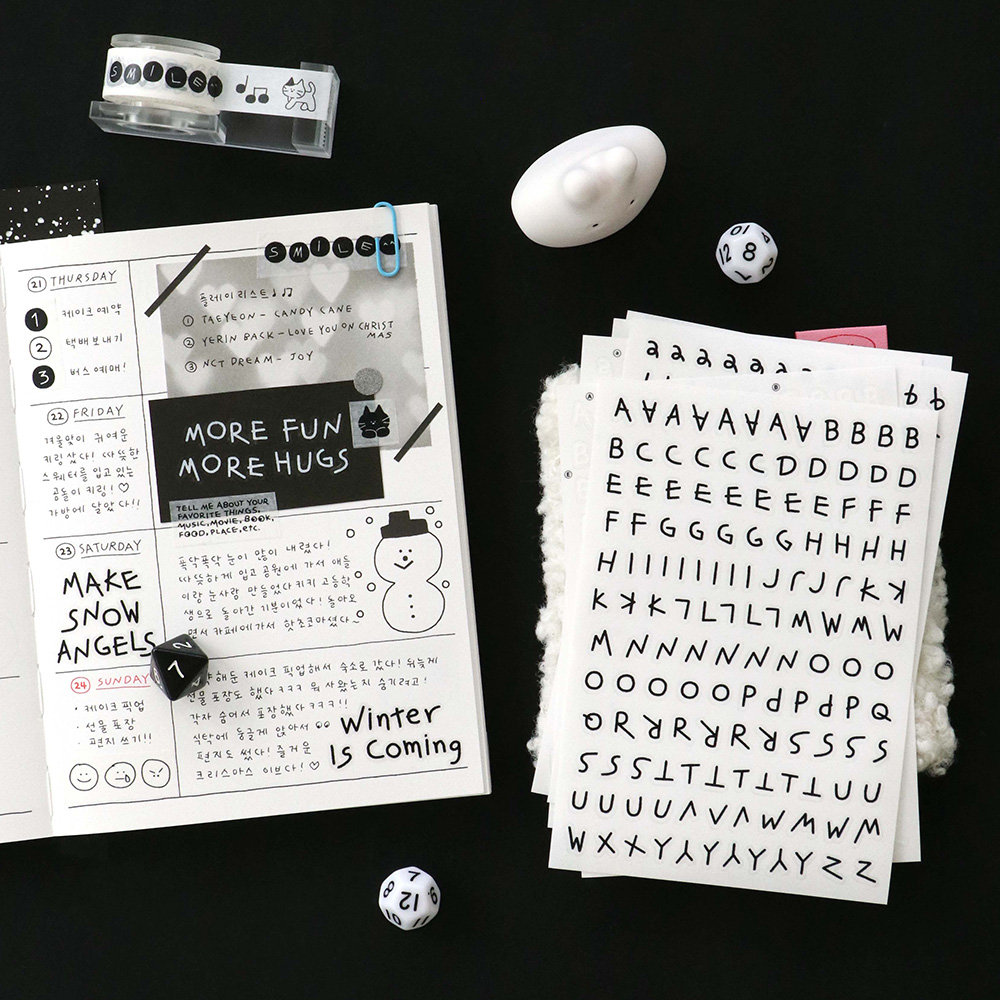 SMILE
SMILE
21 THURSDAY
1 케이크 예약
2 택배 보내기
3 버스 예매!
플레이리스트♩♪♫
① TAEYEON - CANDY CANE
② YERIN BACK - LOVE YOU ON CHRIST
MAS
③ NCT DREAM - JOY
22 FRIDAY
겨울맞이 귀여운
키링 샀다! 따뜻한
스웨터를 입고 있는
곰돌이 키링!! ♡
가방에 달았다!!
MORE FUN
MORE HUGS
TELL ME ABOUT YOUR
FAVORITE THINGS.
MUSIC, MOVIE, BOOK,
FOOD, PLACE, etc.
23 SATURDAY
MAKE
SNOW
ANGELS
폭닥폭닥 눈이 많이 내렸다!
따뜻하게 입고 공원에 가서 애들
이랑 눈사람 만들었다 키키 고등학
생으로 돌아간 기분이었다! 돌아오
면서 카페에 가서 핫초코 마셨다~
24 SUNDAY
• 케이크 픽업
• 선물 포장
• 편지 쓰기!!
약해둔 케이크 픽업해서 숙소로 갔다! 뒤늦게
선물 포장도 했다 ㅋㅋㅋ 뭐 사왔는지 숨기려고!
각자 숨어서 포장했다 ㅋㅋㅋ!!
식탁에 둥글게 앉아서
편지도 썼다! 즐거운
크리스마스 이브다! ♡
Winter
Is Coming
7
2
10
8
12
2
7
8
12
9
10
a a a a a a
b b
A A A A A A A B B B B
B C C C C C D D D D D
E E E E E E E E F F F
F F G G G G G H H H H
H I I I I I I I J J J K K
K K K L L L L L M W M W
M N N N N N N N O O O
O O O O O P P P P Q
Q R R R R R R S S S S
S S S T T T T T T U U
U U U U V V V W M W M
W X X X Y Y Y Y Y Y Z Z